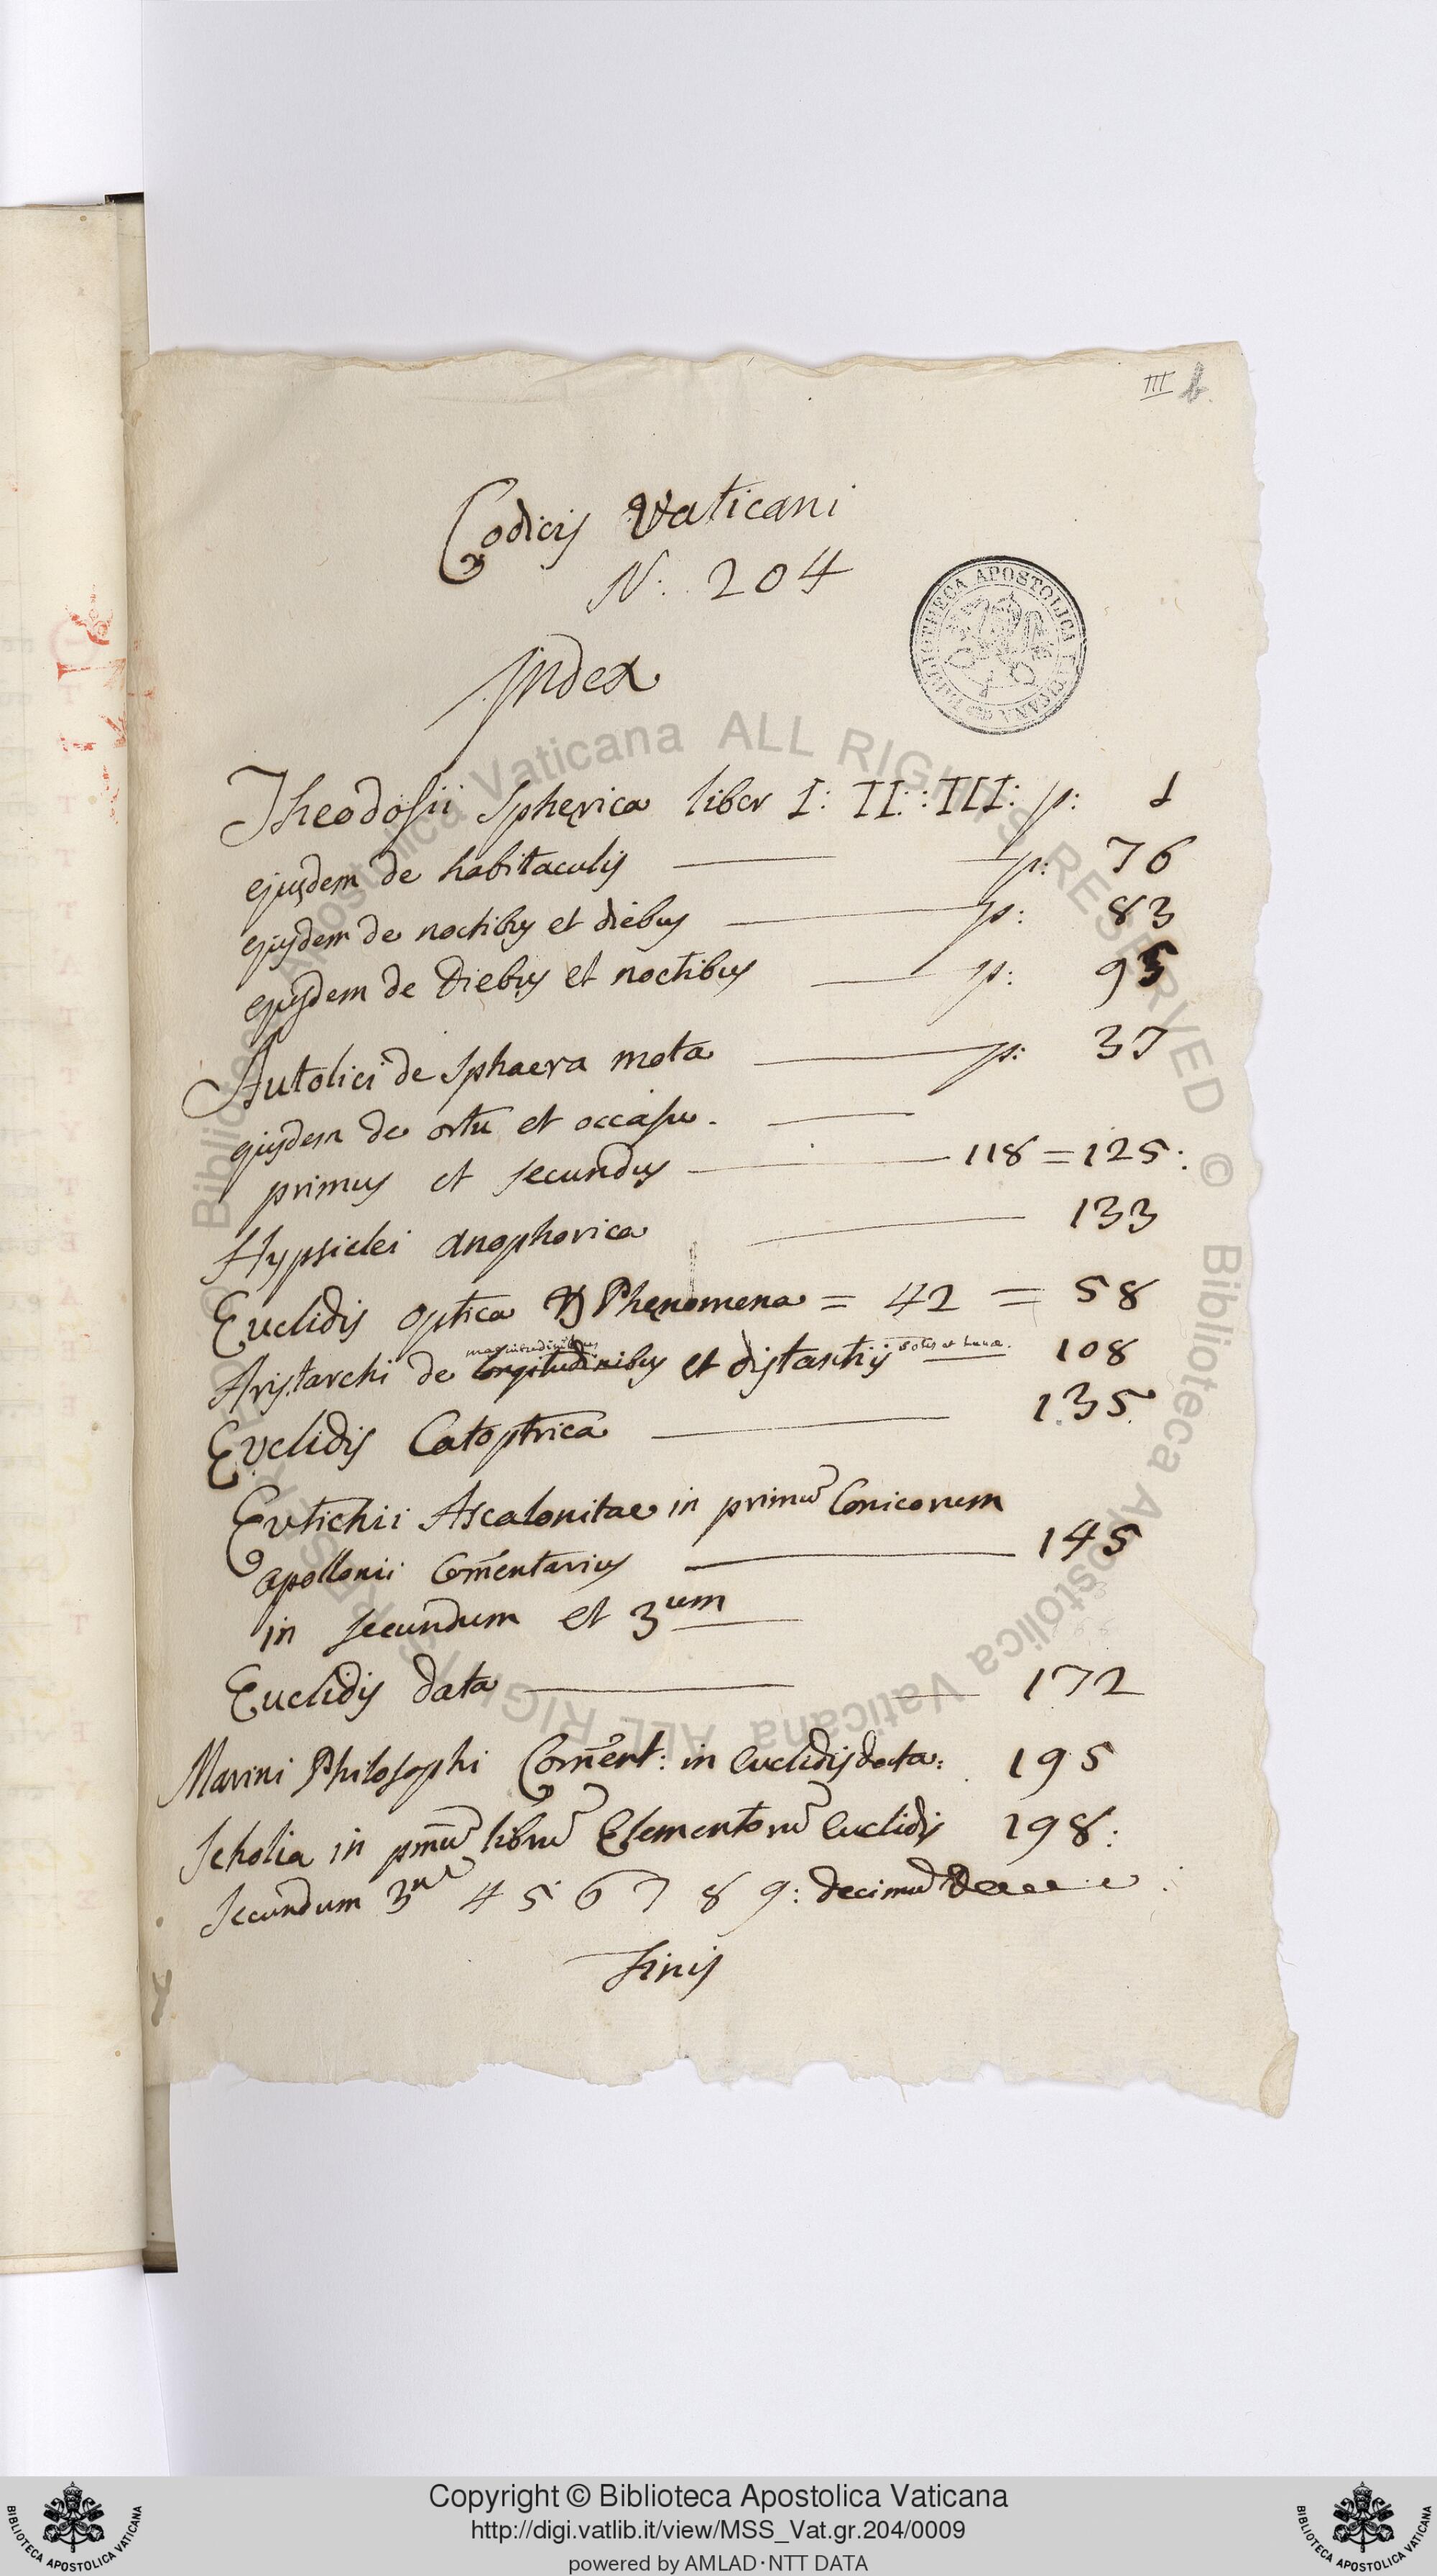 III b.
Codicis Vaticani
N: 204
Index
BIBLIOTHECA APOSTOLICA VATICANA
Theodosii Spherica liber I: II: :III: p: 1
ejusdem de habitaculis p: 76
ejusdem de noctibus et diebus p: 83
ejusdem de Diebus et noctibus p: 95
Autolici de Sphaera mota p: 37
ejusdem de ortu et occasu.
primus et secundus 118 = 125:
Hypsiclei anophorica 133
Euclidis optica & Phęnomena = 42 = 58
magnitudinibus
Aristarchi de longitudinibus et distantiis solis et Lunæ. 108
Euclidis Catoptrica 135
Eutichii Ascalonitae in primũ Conicorum
apollonii Com̃entarius 145
in secundum et 3um
Euclidis data 172
Marini Philosophi Com̃ent: in Euclidis data: 195
Scholia in pmũ librũ Elementorũ Euclidis 198:
Secundum 3um 4 5 6 7 8 9: decimũ
Finis
Biblioteca Apostolica Vaticana ALL RIGHTS RESERVED © Biblioteca Apostolica Vaticana ALL RIGHTS RESERVED ©
Copyright © Biblioteca Apostolica Vaticana
http://digi.vatlib.it/view/MSS_Vat.gr.204/0009
powered by AMLAD·NTT DATA
BIBLIOTECA APOSTOLICA VATICANA
BIBLIOTECA APOSTOLICA VATICANA